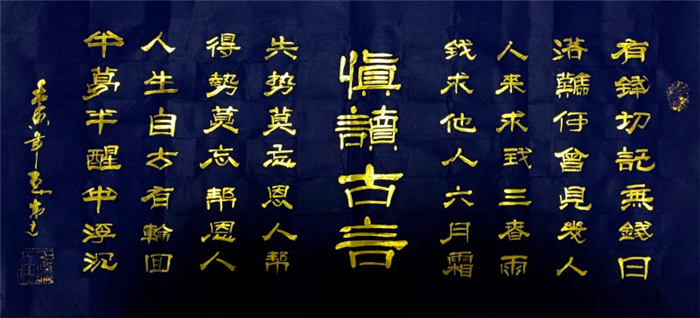 有錢切記無錢日
落難何曾見幾人
人來求我三春雨
我求他人六月霜
慎讀古言
失势莫忘恩人帮
得勢莫忘帮恩人
人生自古有輪回
半夢半醒半浮沉